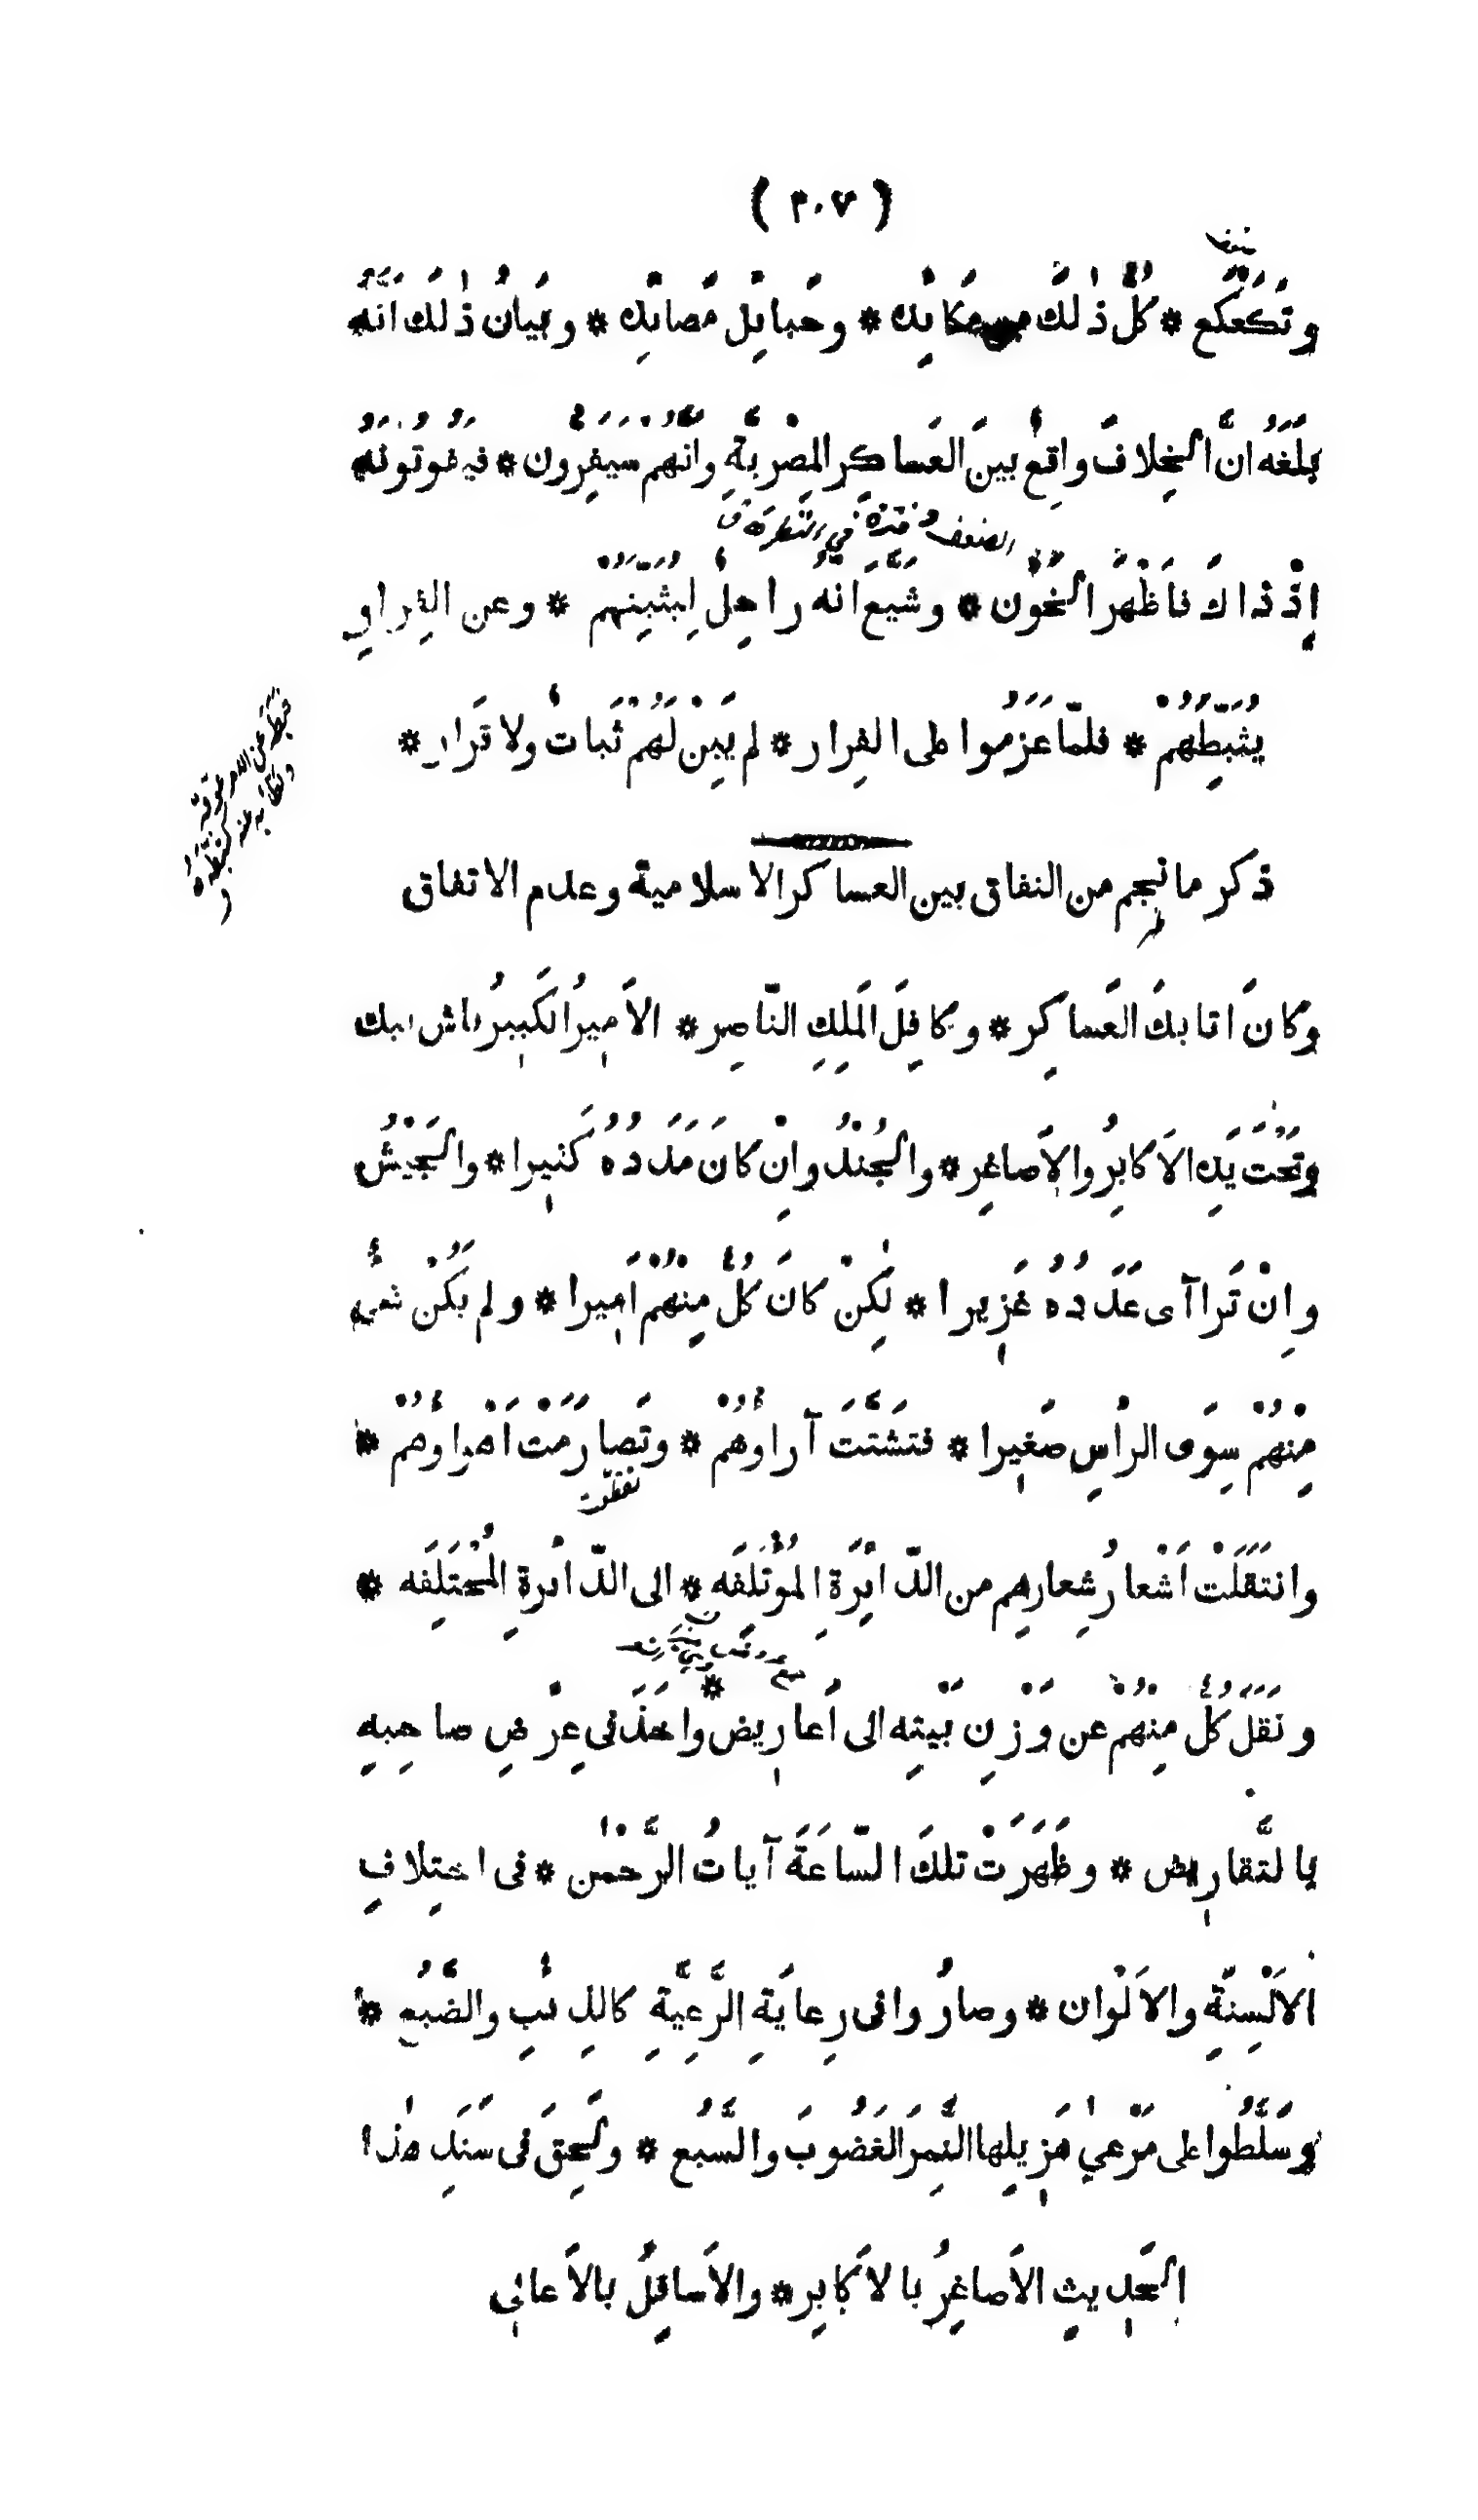 ( ٢٠٧ )
وتَكَعْكُع * كُلُّ ذٰلكَ من مَكايِدِه * وحَبايِلِ مَصايِدِه * وبَيَانُ ذٰلكَ انَّهُ
بلَغَهُ انَّ الخِلافَ واقِعٌ بينَ العَساكرِ المِصْريَّةِ وانَّهُمْ سَيَفِرُّون * فيَفوتُونَهُ
إذْ ذاكَ فاَظْهَرَ الخَوْفَ * وشَيَّعَ انَّهُ راحِلٌ لِيُثَبِّتَهُمْ * وعن الفِرارِ
يُثَبِّطَهُمْ * فلمّا عَزَمُوا على الفِرار * لم يَبِنْ لَهُمْ ثَباتٌ ولا قَرار *
ذكر ما نجم من النفاق بين العساكر الاسلامية وعدم الاتفاق
وكانَ اتابكَ العَساكِرِ * وكافِلَ المَلِكِ النّاصِرِ * الاَمِيرُ الكَبِيرُ باش ببك
وتَحْتَ يَدِه الاَكابِرُ والاَصاغِر * والجُنْدُ وانْ كانَ مَدَدُهُ كَثِيرا * والجَيْشُ
وانْ تَراآى عَدَدُهُ غَزِيرا * لٰكِنْ كانَ كُلٌّ مِنْهُمْ اَمِيرا * ولم يَكُنْ شئٌ
مِنْهُمْ سِوَى الرأسِ صَغِيرا * فتشَتَّتَ آراؤُهُمْ * وتَصارَمَتْ اَهْواؤُهُمْ *
وانتَقَلَتْ اَشْعارُ شِعارِهِم من الدّائِرَةِ المُؤْتَلِفَه * الى الدّائرةِ المُخْتَلِفَه *
ونَقَلَ كُلٌّ مِنْهُمْ عن وَزْنِ بَيْتِه الى اَعارِيض * واخَذَ فى عِرْضِ صاحِبِهِ
بالتَّقارِيض * وظَهَرَتْ تلكَ السّاعَةَ آياتُ الرَّحْمٰن * فى اختِلافِ
الاَلْسِنَةِ والاَلْوان * وصارُوا فى رِعايَةِ الرَّعِيَّةِ كالذِئبِ والضَّبُعِ *
وسَلَّطُوا على مَرْعىٰ هَزِيلِها النَّمِرَ الغَضُوبَ والسَّبُع * ولَحِقَ فى سَنَدِ هٰذا
الحَدِيثِ الاَصاغِرُ بالاَكابِر * والاَسافِلُ بالاَعالِى